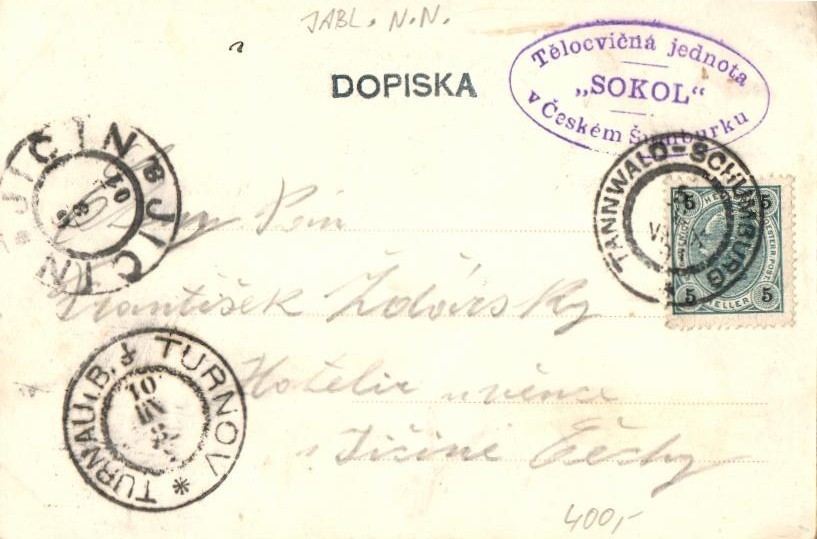 JABL. N.N.
DOPISKA
Tělocvičná jednota
„SOKOL“
v Českém Šumburku
JIČIN JIČIN
10
TANNWALD-SCHUMBURG
5 5
HELLER
5 5
Pan
František Žďárský
TURNAU i. B. TURNOV *
10
Hotelier u věnce
v Jičíně Čechy
400,-